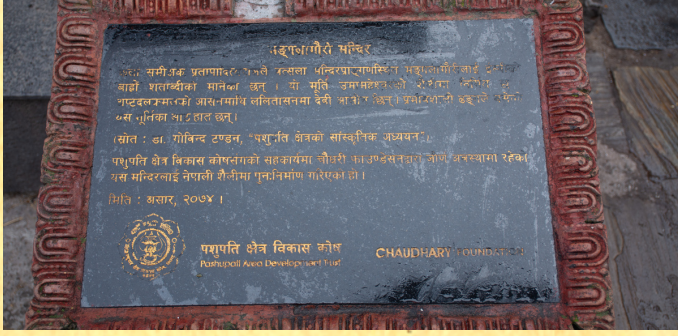 मङ्गलागौरी मन्दिर
कला समीक्षक प्रतापादित्य वत्सला मन्दिरप्राङ्गणस्थित
बाह्रौं शताब्दीका मानेका छन् । यो मूर्ति
अष्टदलकमलको आसनमाथि ललितासनमा देवी छन् ।
यस मूर्तिका आठ हात छन् ।
(स्रोत : डा. गोविन्द टण्डन, "पशुपति क्षेत्रको सांस्कृतिक अध्ययन")
पशुपति क्षेत्र विकास कोषसंगको सहकार्यमा चौधरी फाउण्डेसनद्वारा जीर्ण अवस्थामा रहेको
यस मन्दिरलाई नेपाली शैलीमा पुनःनिर्माण गरिएको हो ।
मिति : असार, २०७४ ।
पशुपति क्षेत्र विकास कोष
Pashupati Area Development Trust
CHAUDHARY FOUNDATION